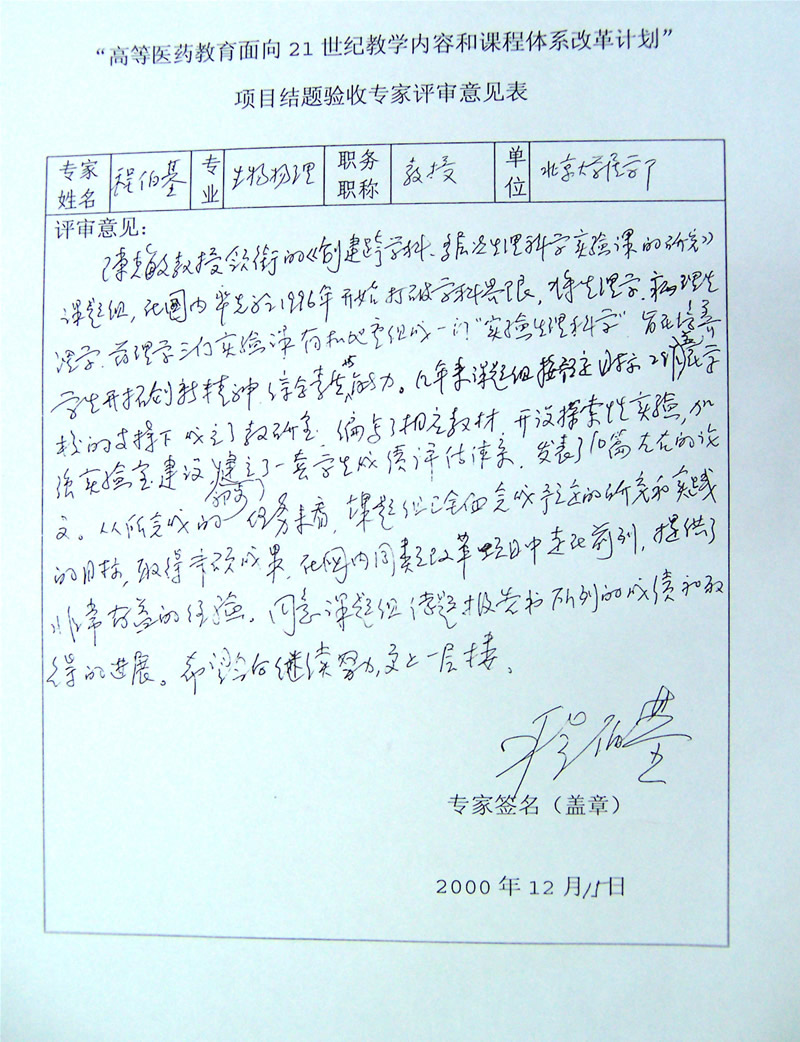 “高等医药教育面向 21 世纪教学内容和课程体系改革计划”
项目结题验收专家评审意见表
专家姓名 程伯基 专业 生物物理 职务职称 教授 单位 北京大学医学部
评审意见：
教授领衔的《创建跨学科、多层次生理科学实验课的研究》
课题组，在国内率先于1996年开始打破学科界限，将生理学、病理生
理学、药理学三门实验课有机地重组成一门“实验生理科学”，旨在培养
学生开拓创新精神、综合素质与能力。几年来课题组按既定目标 在学
校的支持下成立了教研室，编写了相应教材，开设探索性实验，加
强实验室建设，建立了一套学生成绩评估体系，发表了10篇左右的论
文。从所完成的任务来看，课题组已全面完成预定的研究和实践
的目标，取得 成果，在国内同类改革项目中走在前列，提供了
非常有益的经验。同意课题组 报告书所列的成绩和取
得的进展。希望 继续努力，更上一层楼。
程伯基
专家签名（盖章）
2000 年 12 月15日